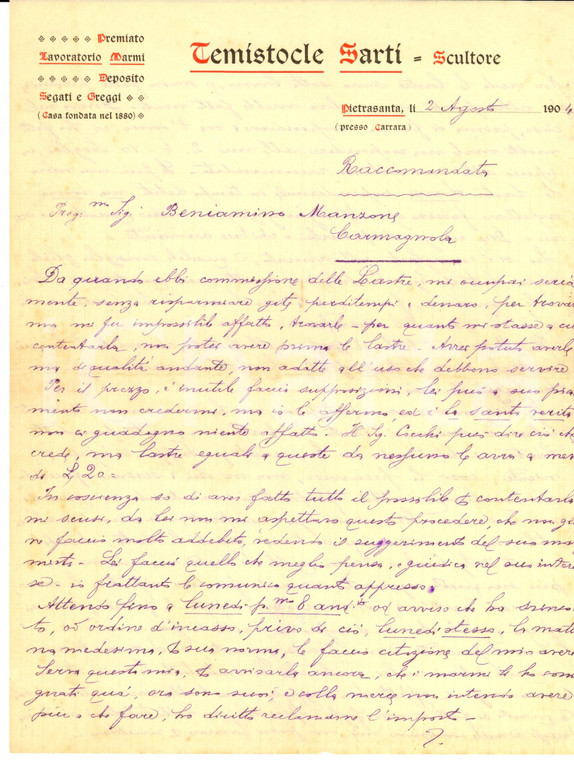 Premiato
Lavoratorio Marmi
Deposito
Segati e Greggi
(Casa fondata nel 1880)
Temistocle Sarti = Scultore
Pietrasanta, li 2 Agosto 1904
(presso Carrara)
Raccomandata
Preg.mo Sig. Beniamino Manzone
Carmagnola
Da quando ebbi commissione delle Lastre, mi occupai seria
mente, senza risparmiare gite, perditempi e denaro, per trovarle
ma mi fu impossibile affatto, trovarle - per quanto mi stasse a cuore
contentarla, non potei avere prima le lastre. Avrei potuto averle
ma di qualità andante, non adatte all'uso che debbono servire
Per il prezzo, è inutile faccia supposizioni, lei può a suo pia
mento non credermi, ma io le affermo ed è la santa verità
non ci guadagno niente affatto. Il Sig. Cecchi può dire ciò che
crede, ma lastre eguali a queste da nessuno le avrà a meno
di L 20 =
In coscienza so di aver fatto tutto il possibile contentarla
mi scusi, da lei non mi aspettavo questo procedere, che non gli
ne faccio molto addebito, vedendo il suggerimento del suo
Lei faccia quello che meglio pensa, e giudica nel suo interes
se - io frattanto le comunico quanto appresso.
Attendo fino a lunedi p. mo 8 and.te od avviso che ha
to, od ordine d'incasso, privo di ciò, lunedi stesso, la matti
na medesima, sua norma, le faccio citazione del mio avere
Serva questa mia, avvisarla ancora, che i marmi li ho conse
gnati qua, ora sono suoi, e colla merce non intendo avere
più a che fare, ho diritto reclamarne l'importo -